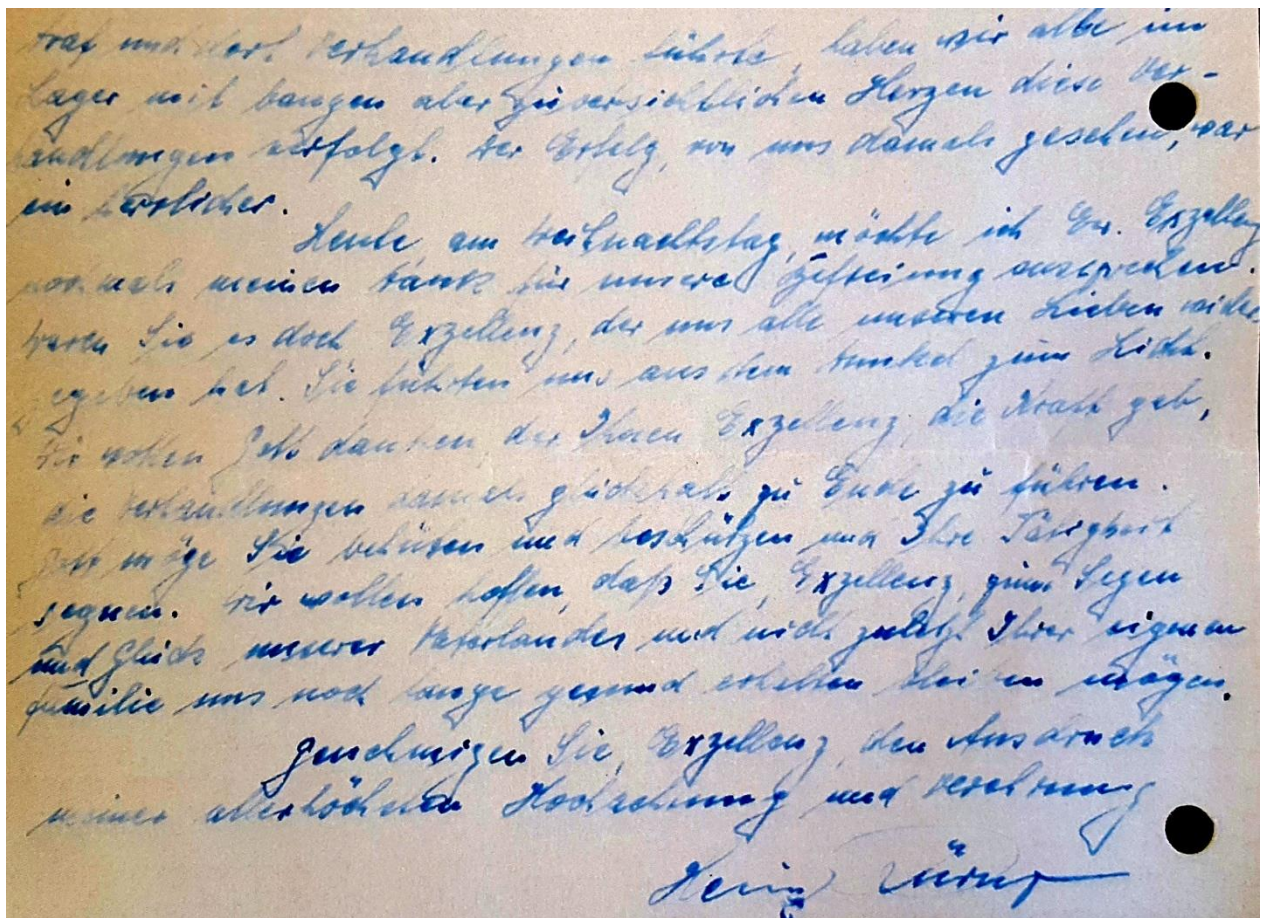 traf und dort Verhandlungen führte, haben wir alle im
Lager mit bangen aber zuversichtlichen Herzen diese Ver-
handlungen verfolgt. Der Erfolg, von uns damals gesehen, war
ein herrlicher.
Heute am Weihnachtstag, möchte ich Ew. Exzellenz
nochmals meinen Dank für unsere Befreiung aussprechen.
Waren Sie es doch Exzellenz, der uns alle unseren Lieben wieder
gegeben hat. Sie führten uns aus dem Dunkel zum Licht.
Wir wollen Gott danken, der Ihnen Exzellenz, die Kraft gab,
die Verhandlungen damals glückhaft zu Ende zu führen.
Gott möge Sie behüten und beschützen und Ihre Tätigkeit
segnen. Wir wollen hoffen, daß Sie, Exzellenz, zum Segen
und Glück unseres Vaterlandes und nicht zuletzt Ihrer eigenen
Familie uns noch lange gesund erhalten bleiben mögen.
Genehmigen Sie, Exzellenz, den Ausdruck
meiner allerhöchsten Hochachtung und Verehrung
Heinz